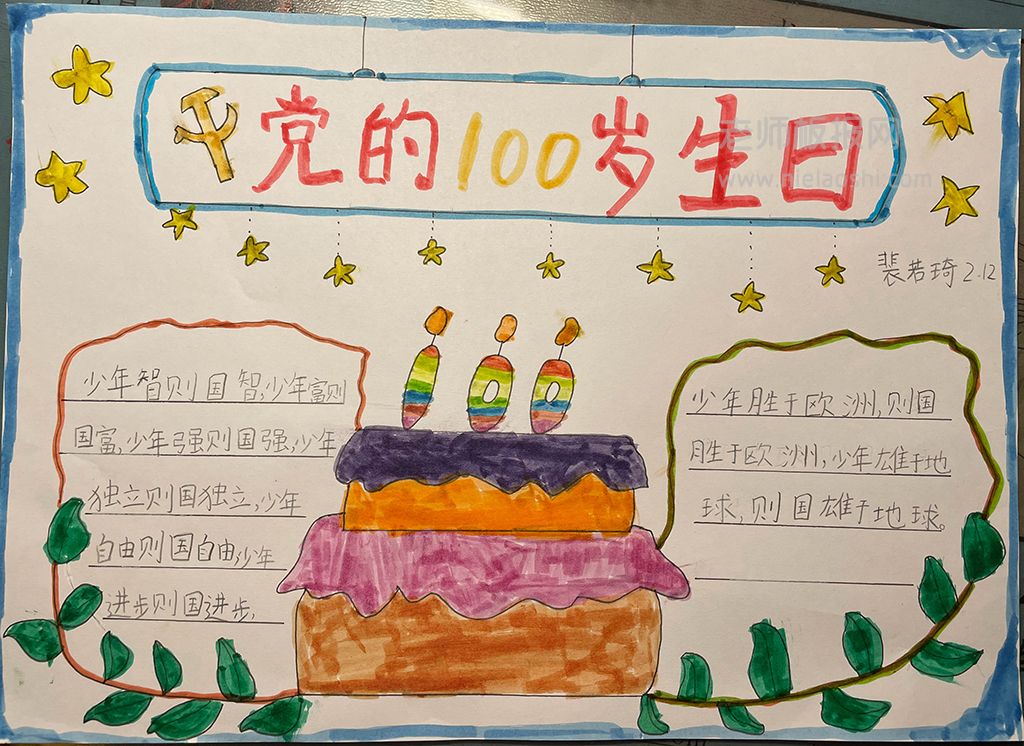 党的100岁生日
老师板报网
www.mielaoshi.com
裴若琦2.12
少年智则国智,少年富则
国富,少年强则国强,少年
独立则国独立,少年
自由则国自由少年
进步则国进步,
少年胜于欧洲,则国
胜于欧洲,少年雄于地
球,则国雄于地球。